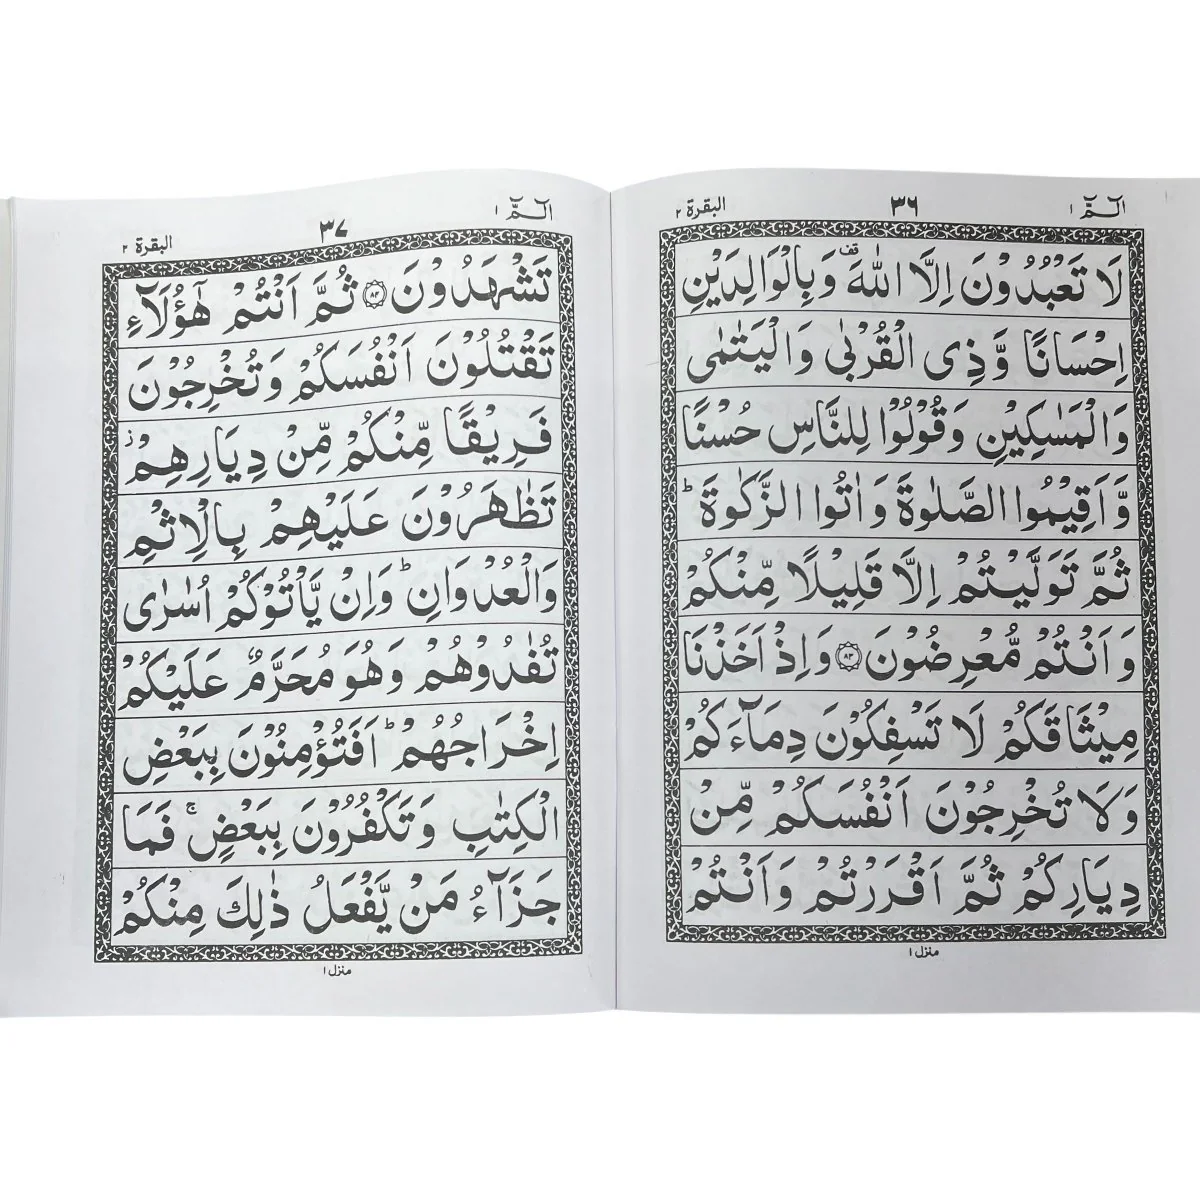 الٓمّٓ ١
٣٦
البقرة ٢
لَا تَعْبُدُوْنَ اِلَّا اللّٰهَ قف وَبِالْوَالِدَيْنِ
اِحْسَانًا وَّذِى الْقُرْبٰى وَالْيَتٰمٰى
وَالْمَسٰكِيْنِ وَقُوْلُوْا لِلنَّاسِ حُسْنًا
وَّاَقِيْمُوا الصَّلٰوةَ وَاٰتُوا الزَّكٰوةَ ؕ
ثُمَّ تَوَلَّيْتُمْ اِلَّا قَلِيْلًا مِّنْكُمْ
وَاَنْتُمْ مُّعْرِضُوْنَ ٨٣ وَاِذْ اَخَذْنَا
مِيْثَاقَكُمْ لَا تَسْفِكُوْنَ دِمَآءَكُمْ
وَلَا تُخْرِجُوْنَ اَنْفُسَكُمْ مِّنْ
دِيَارِكُمْ ثُمَّ اَقْرَرْتُمْ وَاَنْتُمْ
منزل ١
الٓمّٓ ١
٣٧
البقرة ٢
تَشْهَدُوْنَ ٨٤ ثُمَّ اَنْتُمْ هٰٓؤُلَآءِ
تَقْتُلُوْنَ اَنْفُسَكُمْ وَتُخْرِجُوْنَ
فَرِيْقًا مِّنْكُمْ مِّنْ دِيَارِهِمْ ز
تَظٰهَرُوْنَ عَلَيْهِمْ بِالْاِثْمِ
وَالْعُدْوَانِ ؕ وَاِنْ يَّاْتُوْكُمْ اُسٰرٰى
تُفٰدُوْهُمْ وَهُوَ مُحَرَّمٌ عَلَيْكُمْ
اِخْرَاجُهُمْ ؕ اَفَتُؤْمِنُوْنَ بِبَعْضِ
الْكِتٰبِ وَتَكْفُرُوْنَ بِبَعْضٍ ۚ فَمَا
جَزَآءُ مَنْ يَّفْعَلُ ذٰلِكَ مِنْكُمْ
منزل ١